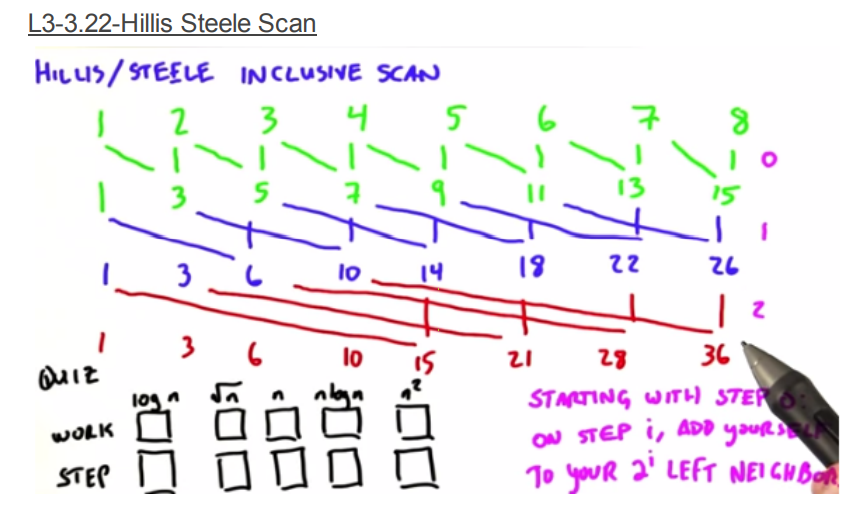 L3-3.22-Hillis Steele Scan
HILLIS/STEELE INCLUSIVE SCAN
1 2 3 4 5 6 7 8
0
1 3 5 7 9 11 13 15
1
1 3 6 10 14 18 22 26
2
1 3 6 10 15 21 28 36
QUIZ
log n √n n nlogn n²
WORK
STEP
STARTING WITH STEP 0:
ON STEP i, ADD YOURSELF
TO YOUR 2ⁱ LEFT NEIGHBOR